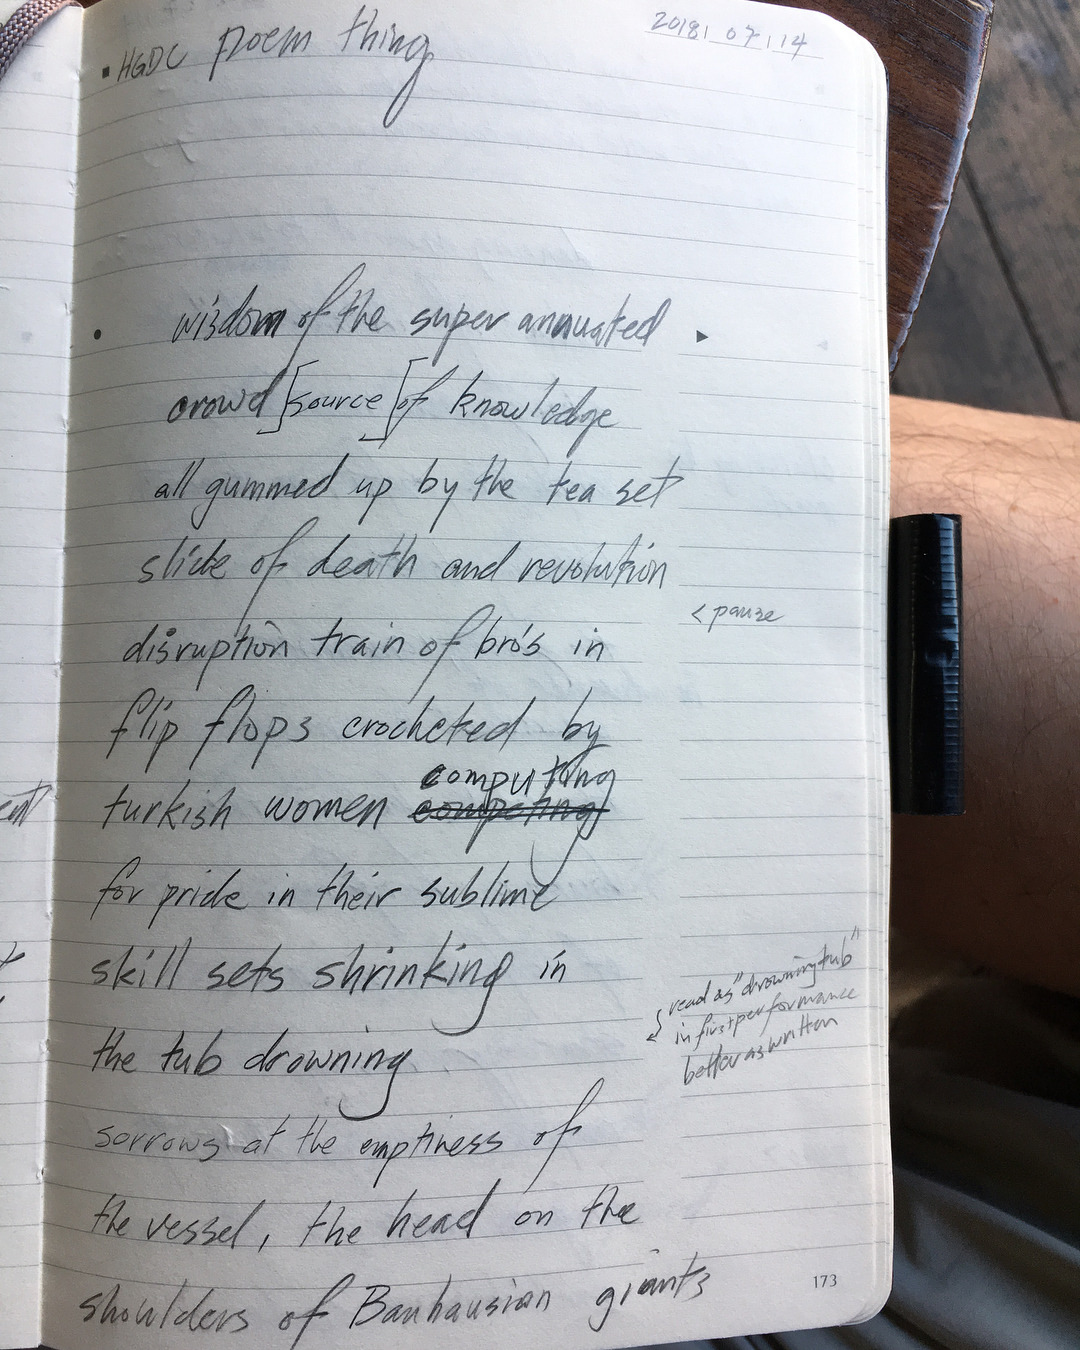 HGDC poem thing
2018 | 07 | 14
wisdom of the super annuated
crowd [source] of knowledge
all gummed up by the tea set
slide of death and revolution
< pause
disruption train of bro's in
flip flops crocheted by
computing
turkish women competing
for pride in their sublime
skill sets shrinking in
read as "drowning tub"
in first performance
better as written
the tub drowning
sorrows at the emptiness of
the vessel, the head on the
shoulders of Bauhausian giants
173